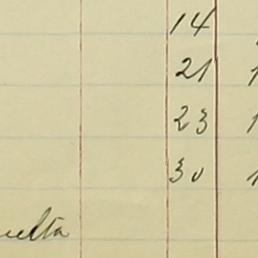 14
21 1
23 1
30 1
uelta